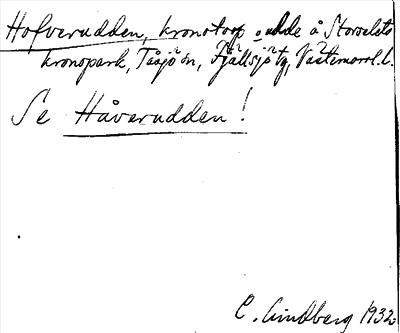 Hofverudden, kronotorp o. udde å Storselets
kronopark, Tåsjö sn, Fjällsjö tg, Västernorrl. l.
Se Håverudden!
C. Lindberg 1932